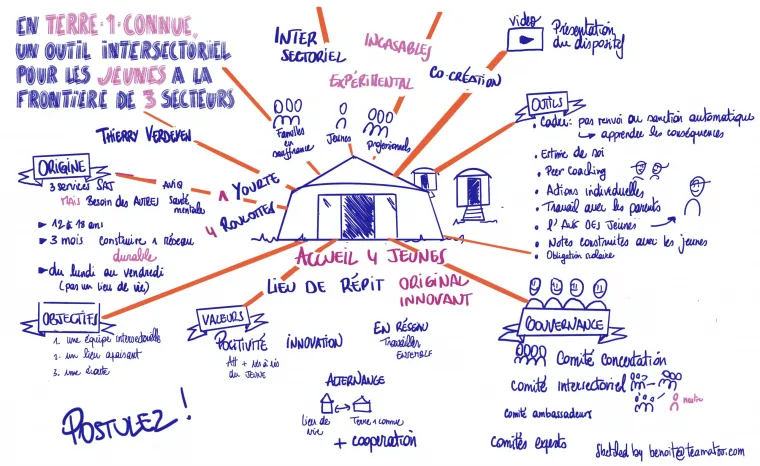 EN TERRE·1·CONNUE,
UN OUTIL INTERSECTORIEL
POUR LES JEUNES A LA
FRONTIÈRE DE 3 SECTEURS
THIERRY VERDEYEN
INTER
SECTORIEL
INCASABLES
EXPÉRIMENTAL
CO-CRÉATION
video
Présentation
du dispositif
Familles
en
souffrance
Jeunes
professionnels
ORIGINE
3 services SAJ
MAIS Besoin des AUTRES
AViQ
Santé
mentale
► 12 à 18 ans
► 3 mois construire 1 réseau
durable
► du lundi au vendredi
(pas un lieu de vie)
1 YOURTE
4 ROULOTTES
OUTILS
• Cadre: pas renvoi ou sanction automatique
apprendre les conséquences
• Estime de soi
• Peer Coaching
• Actions individuelles
• Travail avec les parents
• l'AVIS DES JEUNES
• Notes construites avec les jeunes
• Obligation scolaire
ACCUEIL 4 JEUNES
LIEU DE RÉPIT
ORIGINAL
INNOVANT
OBJECTIFS
1. une équipe intersectorielle
2. un lieu apaisant
3. une écoute
VALEURS
POSITIVITÉ
Att + vis à vis
du JEUNE
INNOVATION
EN RÉSEAU
Travailler
ENSEMBLE
ALTERNANCE
Lieu de
vie
Terre 1 connue
+ coopération
GOUVERNANCE
Comité Concertation
Comité intersectoriel
neutre
comité ambassadeurs
Comités experts
POSTULEZ!
Sketched by benoit@teamatou.com